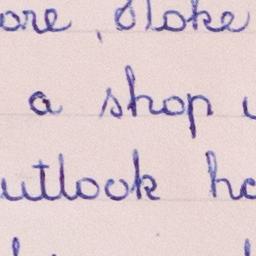 ore, Stoke
a shop
utlook ha